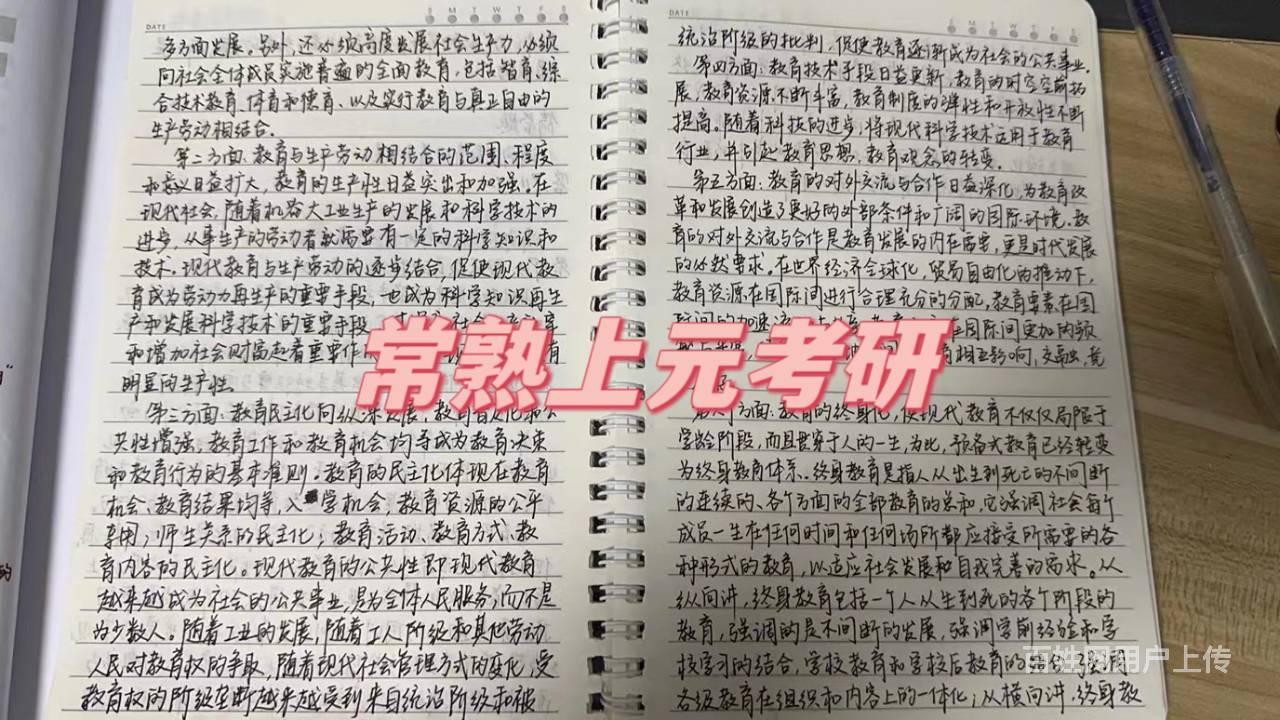 DATE
S M T W T F S
多方面发展。另外,还必须高度发展社会生产力,必须
向社会全体成员实施普遍的全面教育,包括智育、综
合技术教育、体育和德育、以及实行教育与真正自由的
生产劳动相结合。
第二方面:教育与生产劳动相结合的范围、程度
和意义日益扩大,教育的生产性日益突出和加强。在
现代社会,随着机器大工业生产的发展和科学技术的
进步,从事生产的劳动者就需要有一定的科学知识和
技术。现代教育与生产劳动的逐步结合,促使现代教
育成为劳动力再生产的重要手段,也成为科学知识再生
产和发展科学技术的重要手段
和增加社会财富起着重要作 有
明显的生产性。
第三方面:教育民主化向纵深发展,教育普及化和公
共性增强,教育工作和教育机会均等成为教育决策
和教育行为的基本准则。教育的民主化体现在教育
机会、教育结果均等,入学机会,教育资源的公平
享用;师生关系的民主化;教育活动、教育方式、教
育内容的民主化。现代教育的公共性即现代教育
越来越成为社会的公共事业,是为全体人民服务,而不是
为少数人。随着工业的发展,随着工人阶级和其他劳动
人民对教育权的争取,随着现代社会管理方式的变化,受
教育权的阶级垄断越来越受到来自统治阶级和被
DATE
S M T W T F S
统治阶级的批判,促使教育逐渐成为社会的公共事业。
第四方面:教育技术手段日益更新,教育的时空空前拓
展,教育资源不断丰富,教育制度的弹性和开放性不断
提高。随着科技的进步,将现代科学技术运用于教育
行业,并引起教育思想、教育观念的转变。
第五方面:教育的对外交流与合作日益深化,为教育改
革和发展创造了更好的外部条件和广阔的国际环境。教
育的对外交流与合作是教育发展的内在需要,更是时代发展
的必然要求。在世界经济全球化,贸易自由化的推动下,
教育资源在国际间进行合理充分的分配,教育要素在国
际间的加速流 在国际间更加频繁
相互影响,交融,竞
第六方面:教育的终身化,使现代教育不仅仅局限于
学龄阶段,而且贯穿于人的一生,为此,预备式教育已经转变
为终身教育体系。终身教育是指人从出生到死亡的不间断
的连续的、各个方面的全部教育的总和,它强调社会每个
成员一生在任何时间和任何场所都应接受所需要的各
种形式的教育,以适应社会发展和自我完善的需求。从
纵向讲,终身教育包括一个人从生到死的各个阶段的
教育,强调的是不间断的发展,强调学前经验和学
校学习的结合,学校教育和学校后教育的结合,强调
各级教育在组织和内容上的一体化;从横向讲,终身教
常熟上元考研
百姓网用户上传